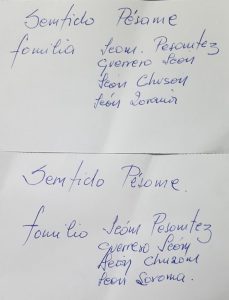 Semtido Pésame
familia León. Pesomtez
Guerrero León
León Chuson
León
Semtido Pésame.
familio León Pesomtez
Guerrero León
León
León Soroma.